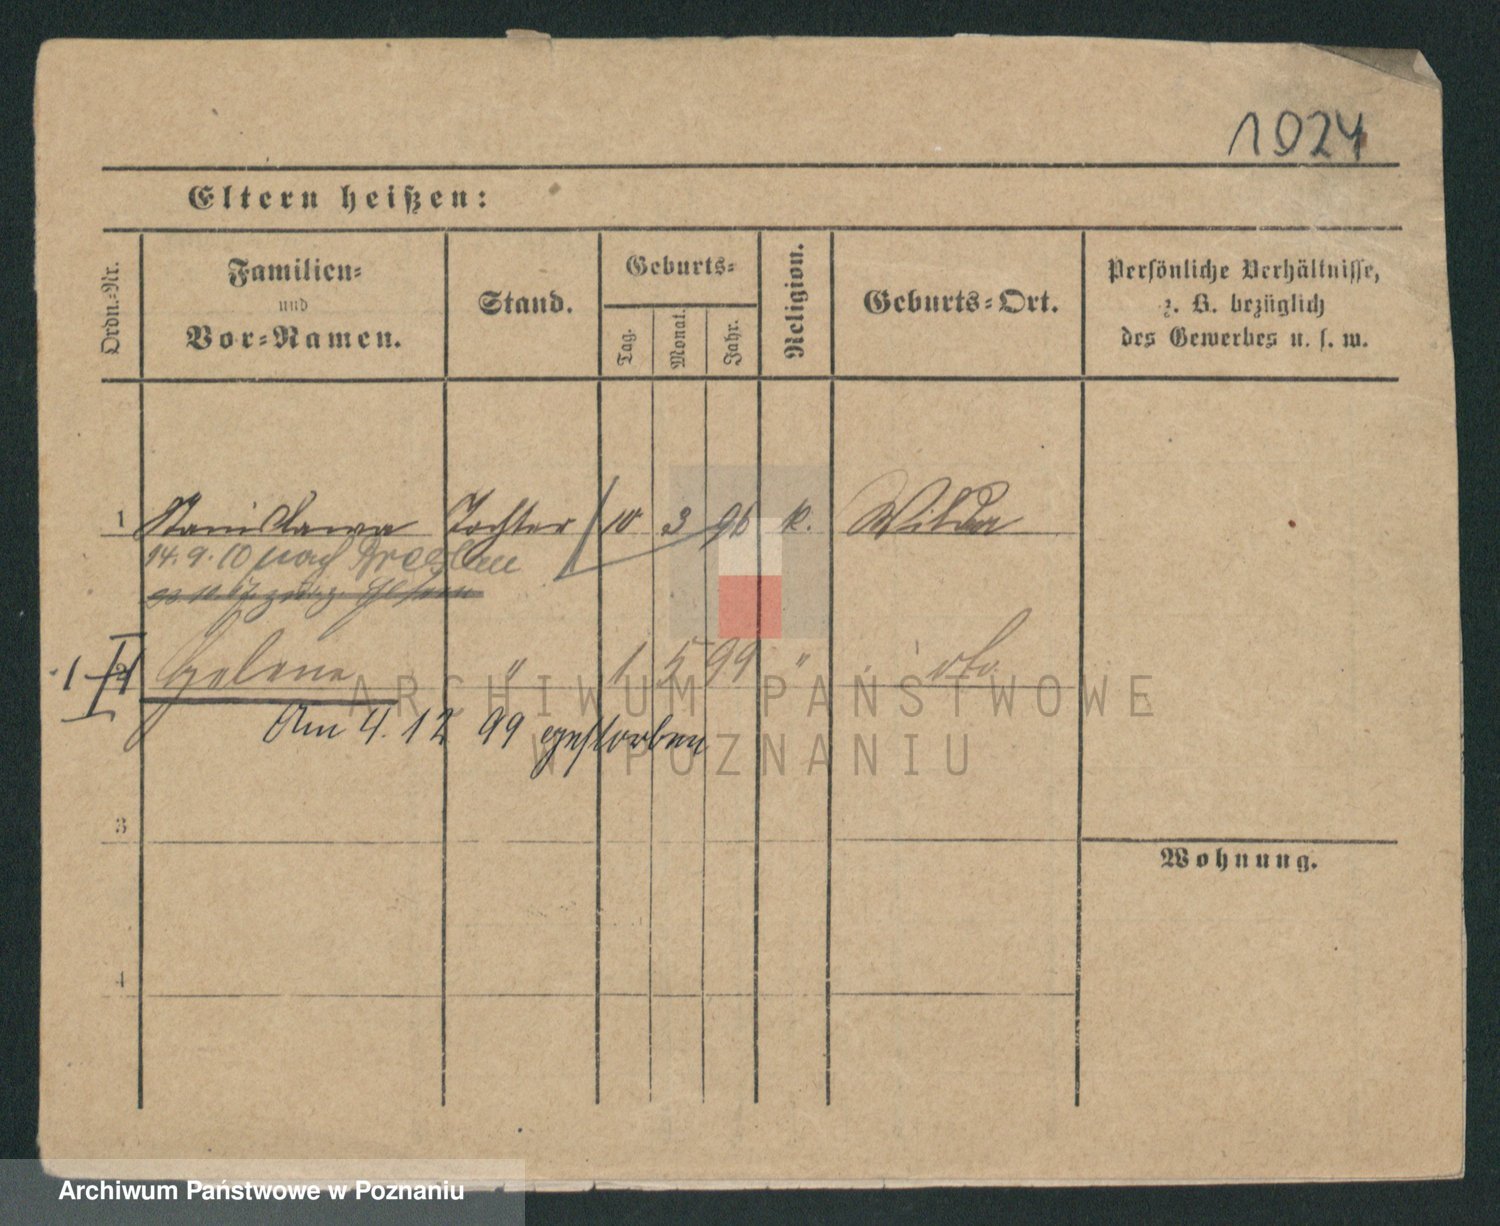 1924
Eltern heißen:
Ordn.=Nr.
Familien=
und
Vor=Namen.
Stand.
Geburts=
Tag.
Monat.
Jahr.
Religion.
Geburts=Ort.
Persönliche Verhältnisse,
z. B. bezüglich
des Gewerbes u. s. w.
1 Stanislawa Tochter 10 3 96 k. Wilda
14. 9. 10 nach Breslau
1 II
2 Helene " 1 5 99 " dto.
Am 4. 12 99 gestorben
3
Wohnung.
4
ARCHIWUM PAŃSTWOWE
W POZNANIU
Archiwum Państwowe w Poznaniu